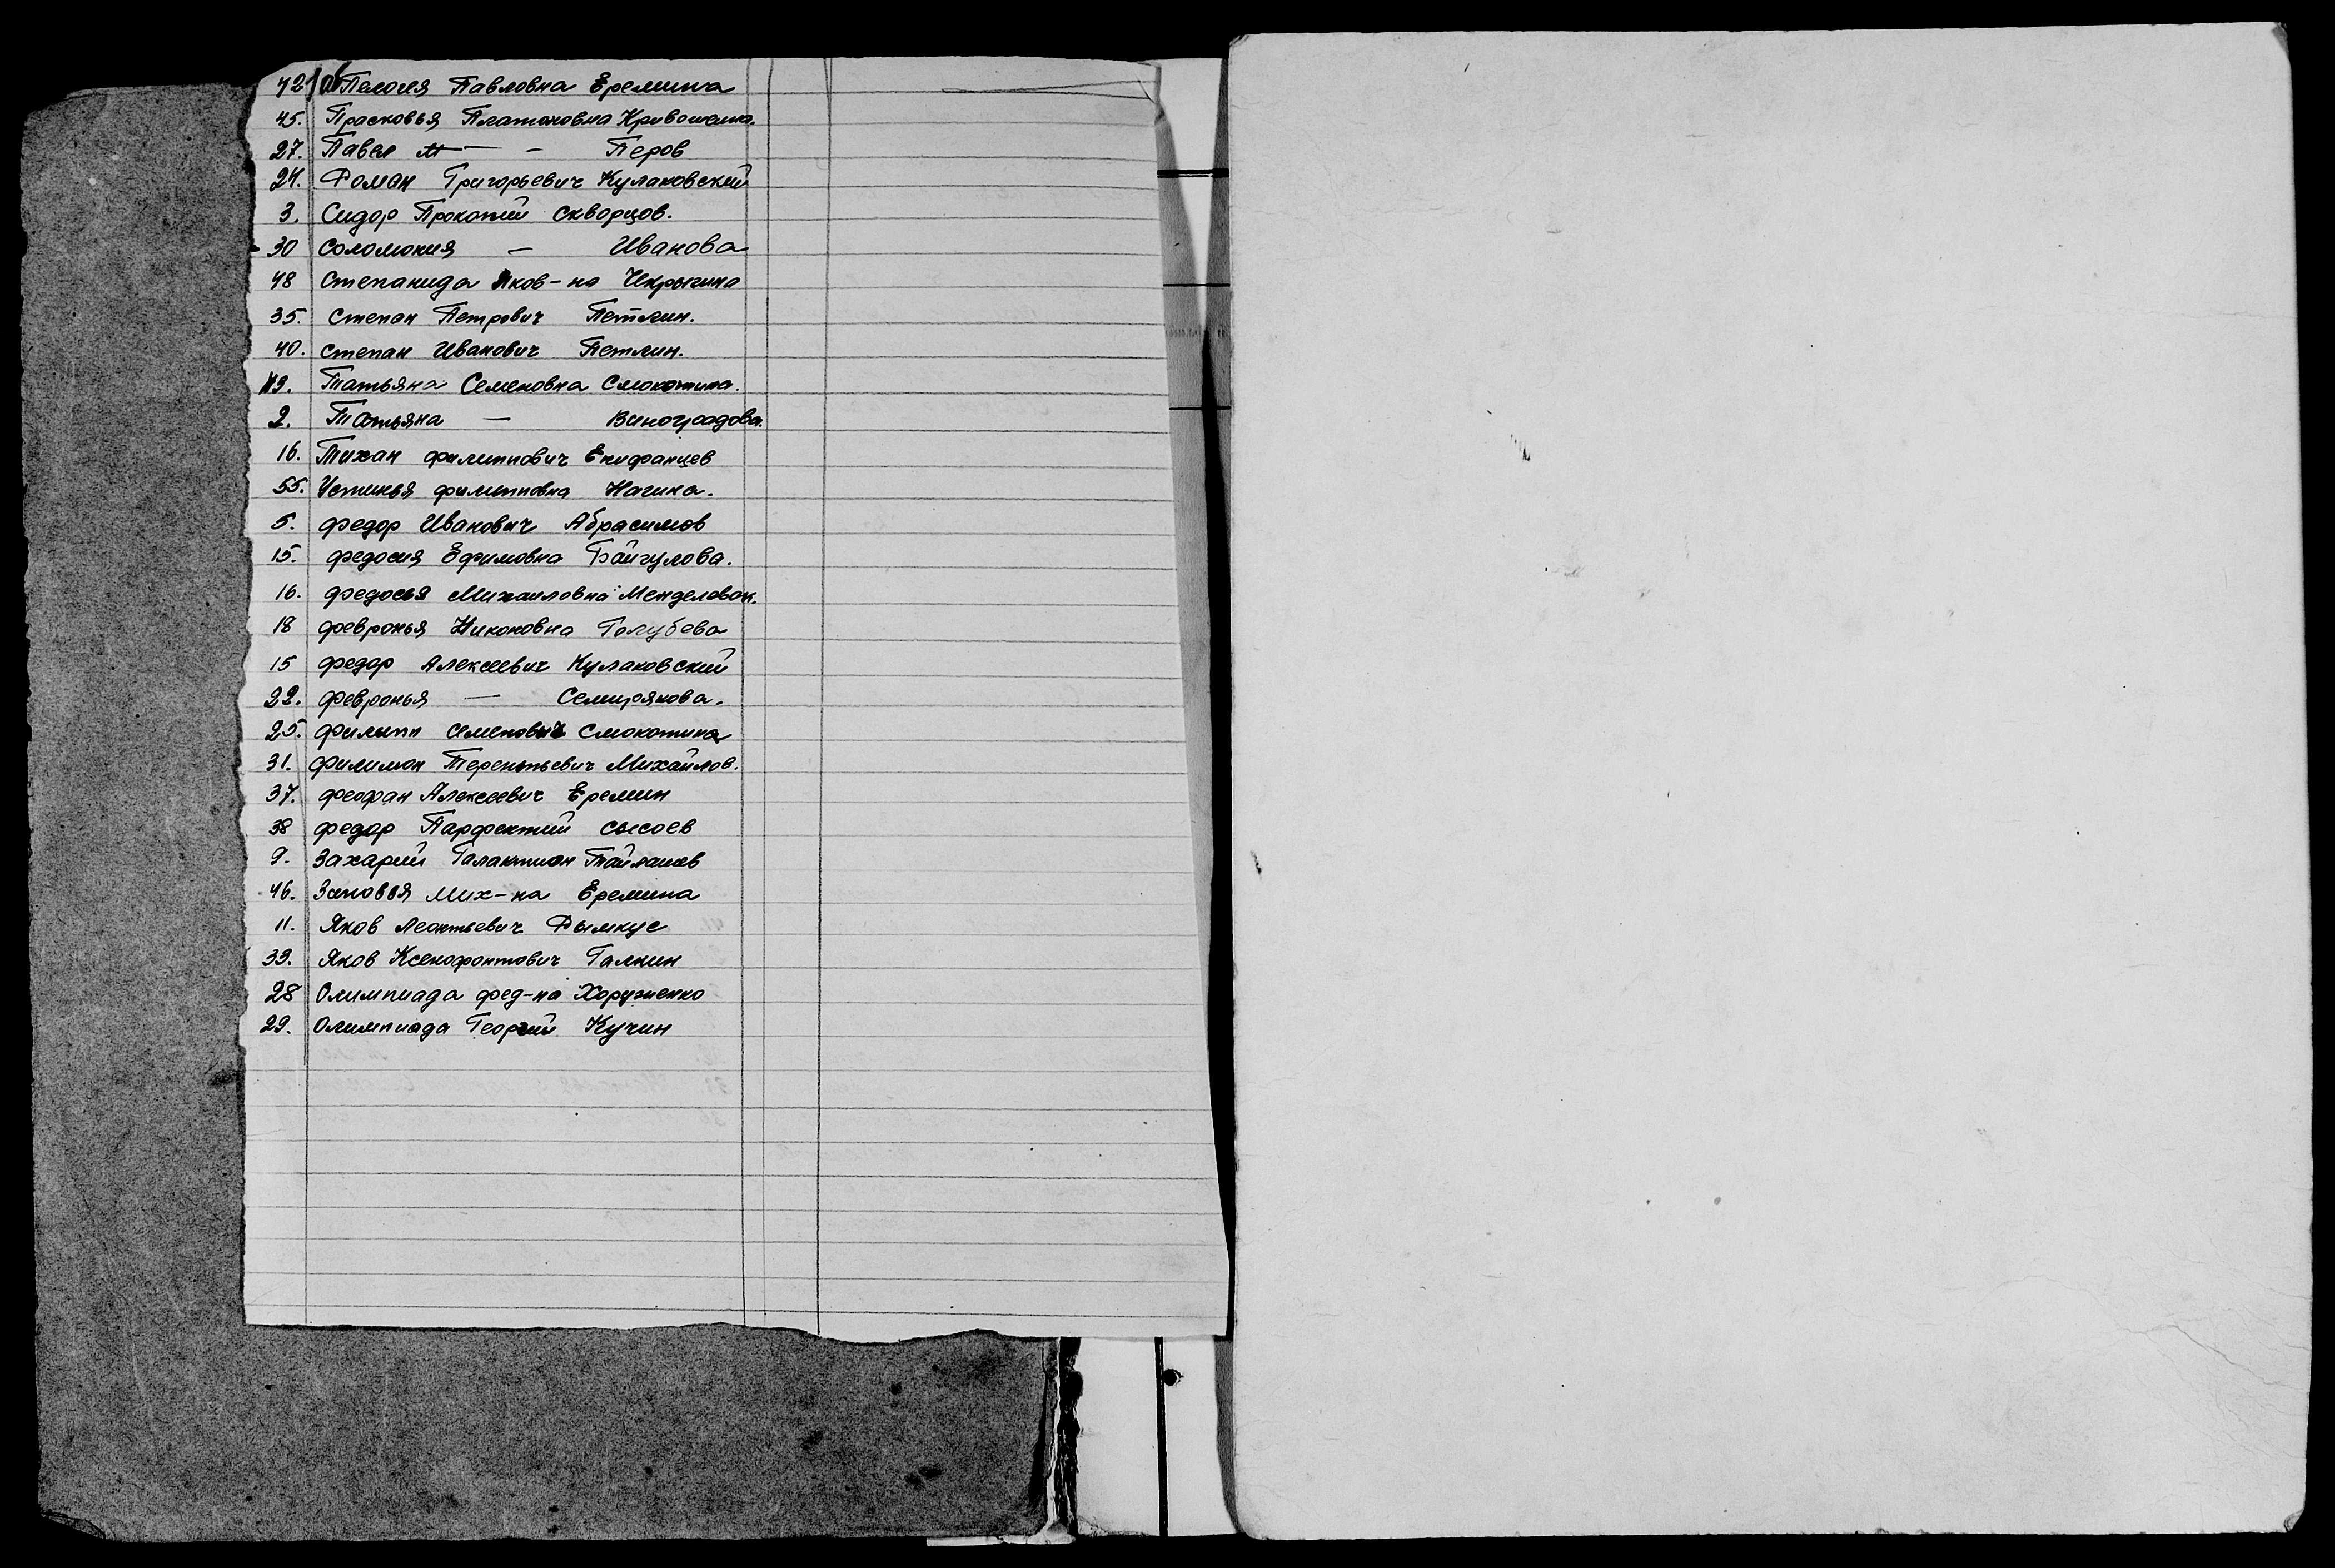 42 Пелогея Павловна Еремина
45. Прасковья Платоновна Кривошеина.
27. Павел — - Перов
24. Роман Григорьевич Кулаковский
3. Сидор Прокопий Скворцов.
30 Соломония — Иванова
48 Степанида Яков-на Чкрыгина
35. Степан Петрович Петлин.
40. Степан Иванович Петлин.
49. Татьяна Семеновна Смокотина.
2. Татьяна — Виноградова.
16. Тихан Филиппович Енифанцев
55. Устинья Филипповна Нагина.
5. Федор Иванович Абрасимов
15. Федосия Ефимовна Байгулова.
16. Федосья Михаиловна Менделовон.
18 Февронья Никоновна Голубева
15 Федор Алексеевич Кулаковский
22. Февронья — Семирякова.
25. Филипп Семенович Смокотина
31. Филимон Терентьевич Михайлов.
37. Феофан Алексеевич Еремин
38 Федор Парфентий Сысоев
9. Захарий Галактион Тайлашев
46. Зиновья Мих-на Еремина
11. Яков Леонтьевич Рымкус
39. Яков Ксенофонтович Галкин
28 Олимпиада Фед-на Хоруженко
29. Олимпиада Георгий Кучин